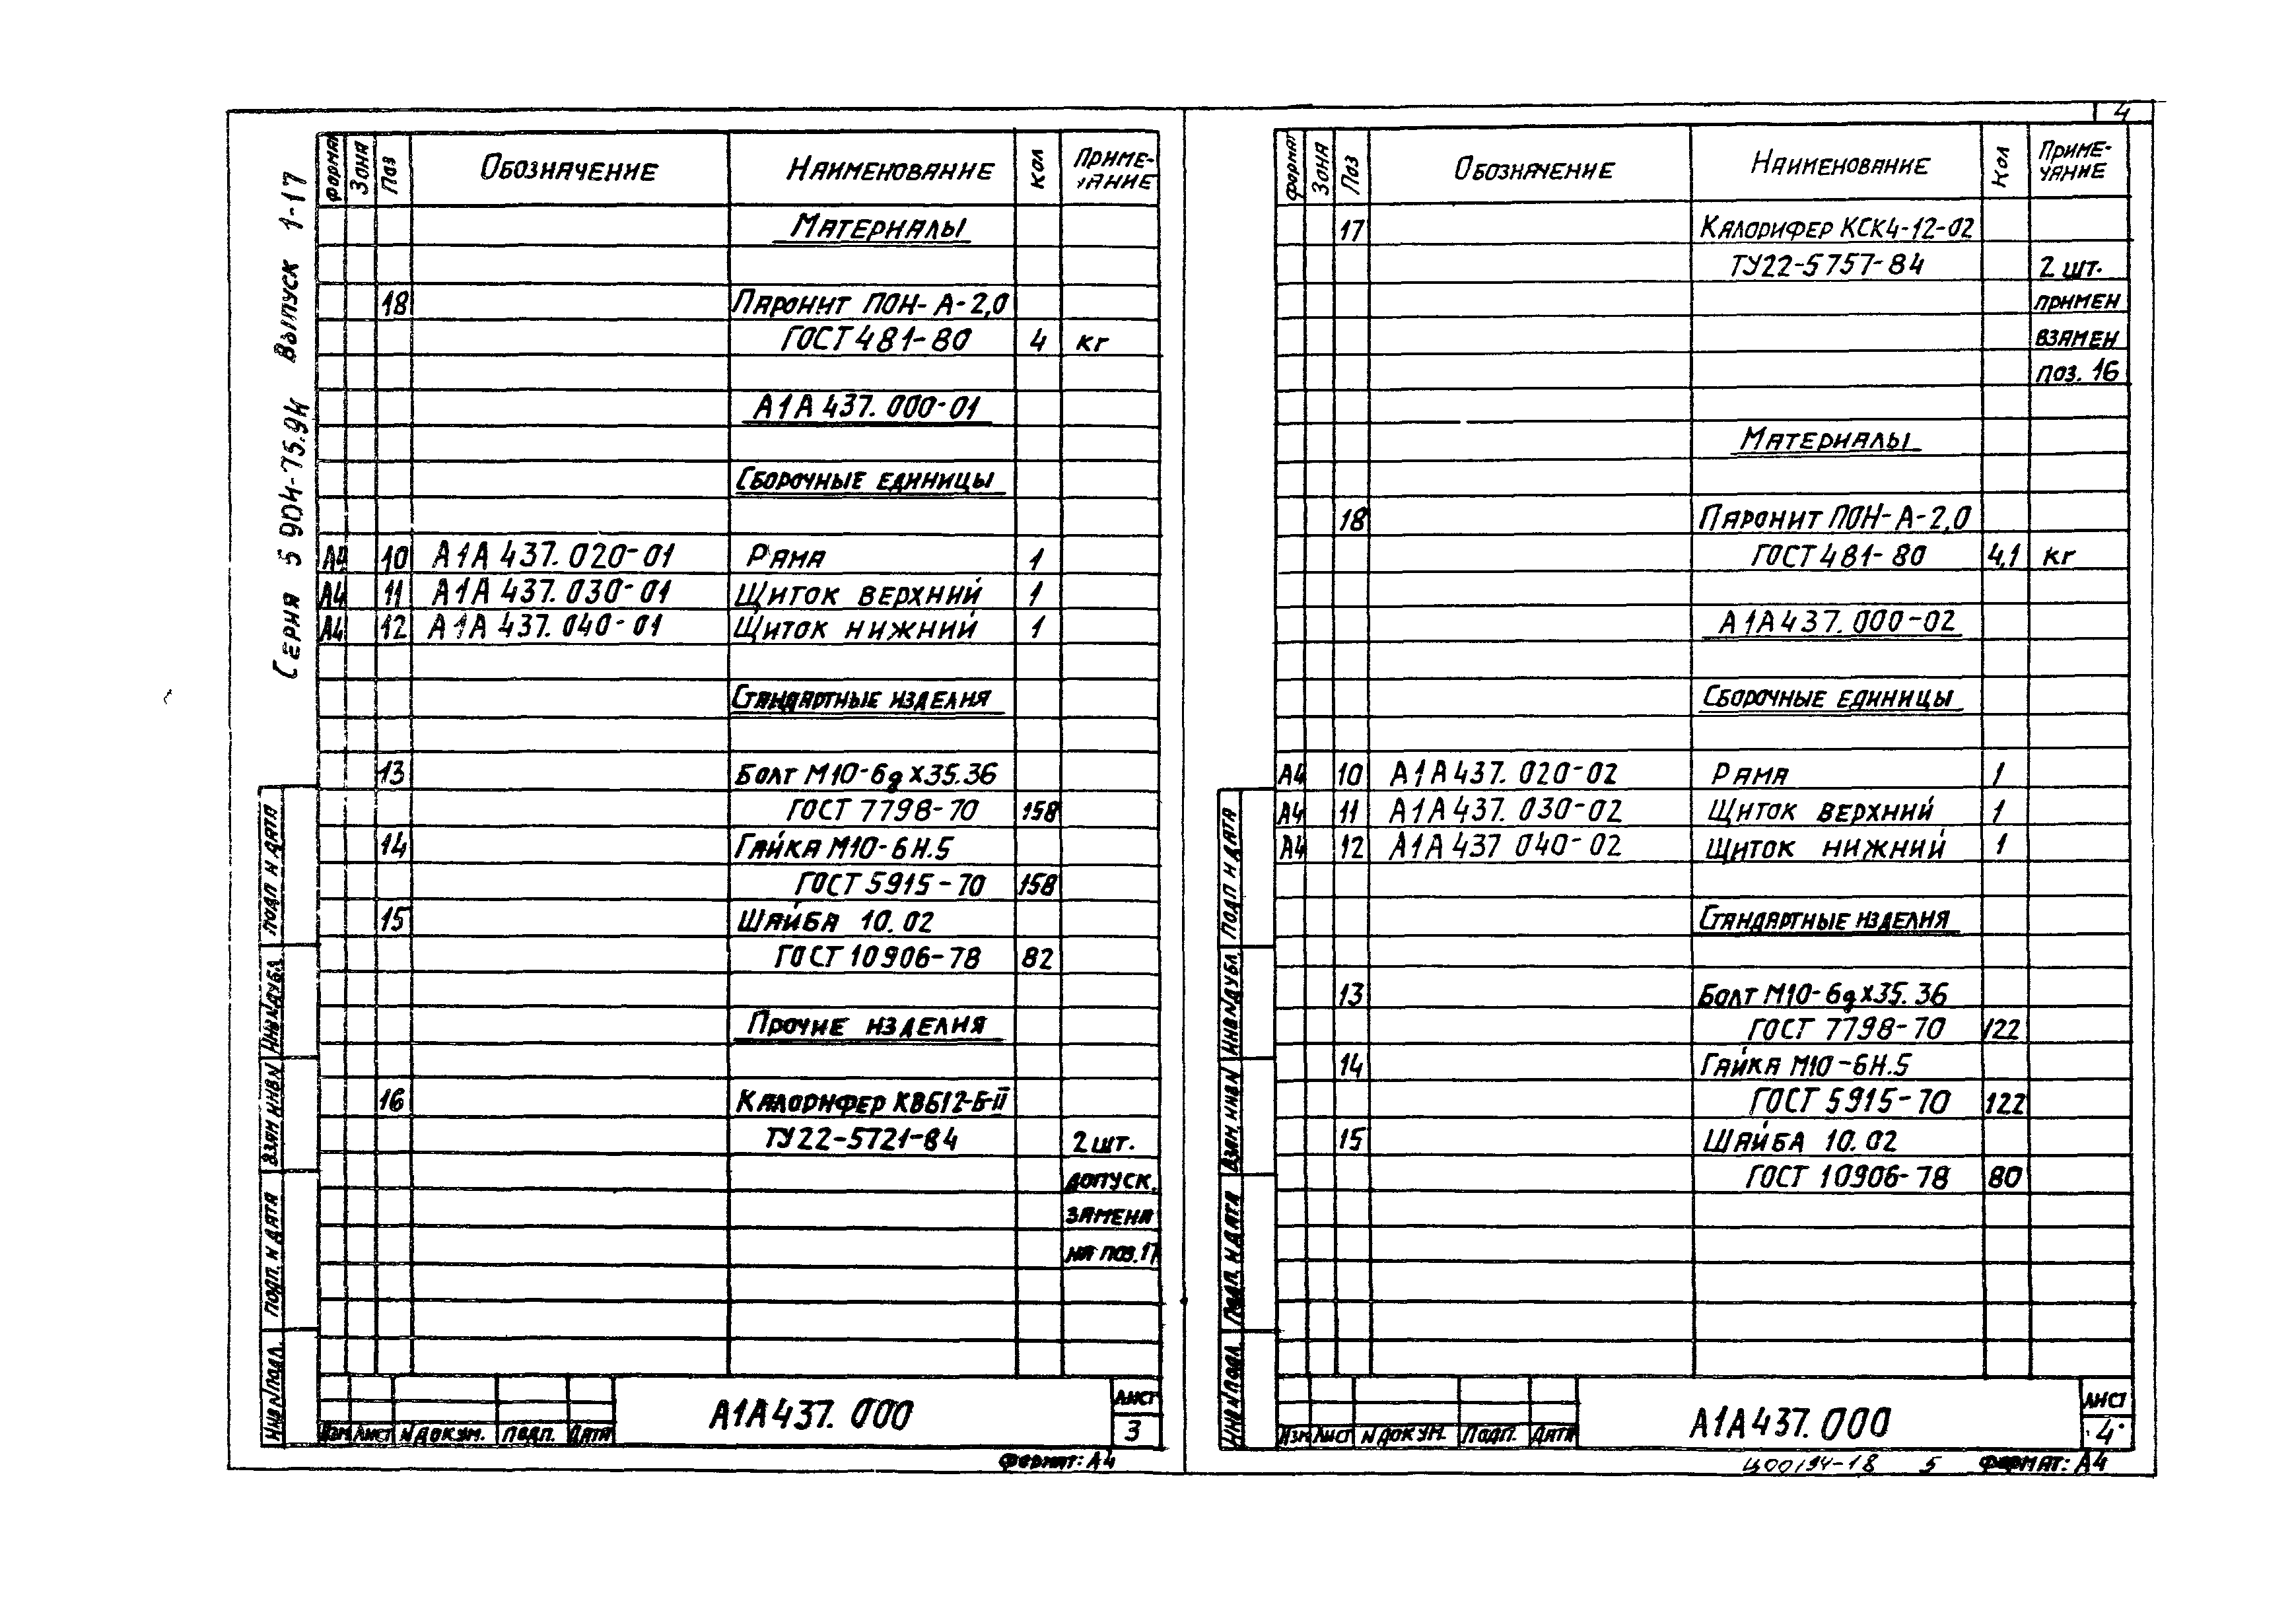 4
Серия 5 904-75.94 Выпуск 1-17
Формат Зона Поз Обозначение Наименование Кол Приме-
чание
Материалы
18 Паронит ПОН-А-2,0
ГОСТ 481-80 4 кг
А1А 437.000-01
Сборочные единицы
А4 10 А1А 437.020-01 Рама 1
А4 11 А1А 437.030-01 Щиток верхний 1
А4 12 А1А 437.040-01 Щиток нижний 1
Стандартные изделия
13 Болт М10-6gх35.36
ГОСТ 7798-70 158
14 Гайка М10-6Н.5
ГОСТ 5915-70 158
15 Шайба 10.02
ГОСТ 10906-78 82
Прочие изделия
16 Калорифер КВБ12-Б-II
ТУ22-5721-84 2 шт.
допуск.
замена
на поз.17
Инв N подл. Подп. и дата Взам инв N Инв N дубл. Подп и дата
Изм Лист N докум. Подп. Дата
А1А437.000
Лист
3
Формат: А4
Формат Зона Поз Обозначение Наименование Кол Приме-
чание
17 Калорифер КСК4-12-02
ТУ22-5757-84 2 шт.
примен
взамен
поз. 16
Материалы
18 Паронит ПОН-А-2,0
ГОСТ 481-80 4,1 кг
А1А437.000-02
Сборочные единицы
А4 10 А1А437.020-02 Рама 1
А4 11 А1А437.030-02 Щиток верхний 1
А4 12 А1А437 040-02 Щиток нижний 1
Стандартные изделия
13 Болт М10-6gх35.36
ГОСТ 7798-70 122
14 Гайка М10-6Н.5
ГОСТ 5915-70 122
15 Шайба 10.02
ГОСТ 10906-78 80
Инв N подл. Подп. и дата Взам. инв N Инв N дубл Подп и дата
Изм Лист N докум. Подп. Дата
А1А437.000
Лист
4
Ц00194-18 5 Формат: А4